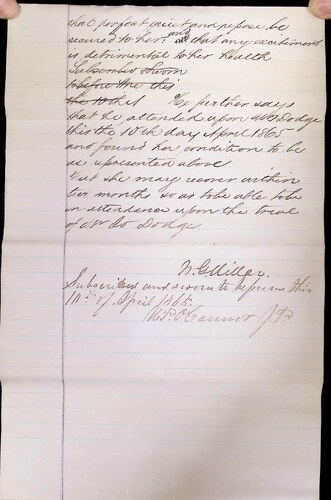 that perfect quiet and repose be
secured to her. and that any excitement
is detrimental to her health
Subscribed & Sworn
to before me this
the 10th He further says
that he attended upon Mrs Dodge
this the 10th day April 1865
and found her condition to be
as represented above
But she may recover within
six months so as to be able to be
in attendance upon the trial
of Dodge
W. G. Millar.
Subscribed and sworn to before me this
10th of April 1865.
O'Connor J.P.